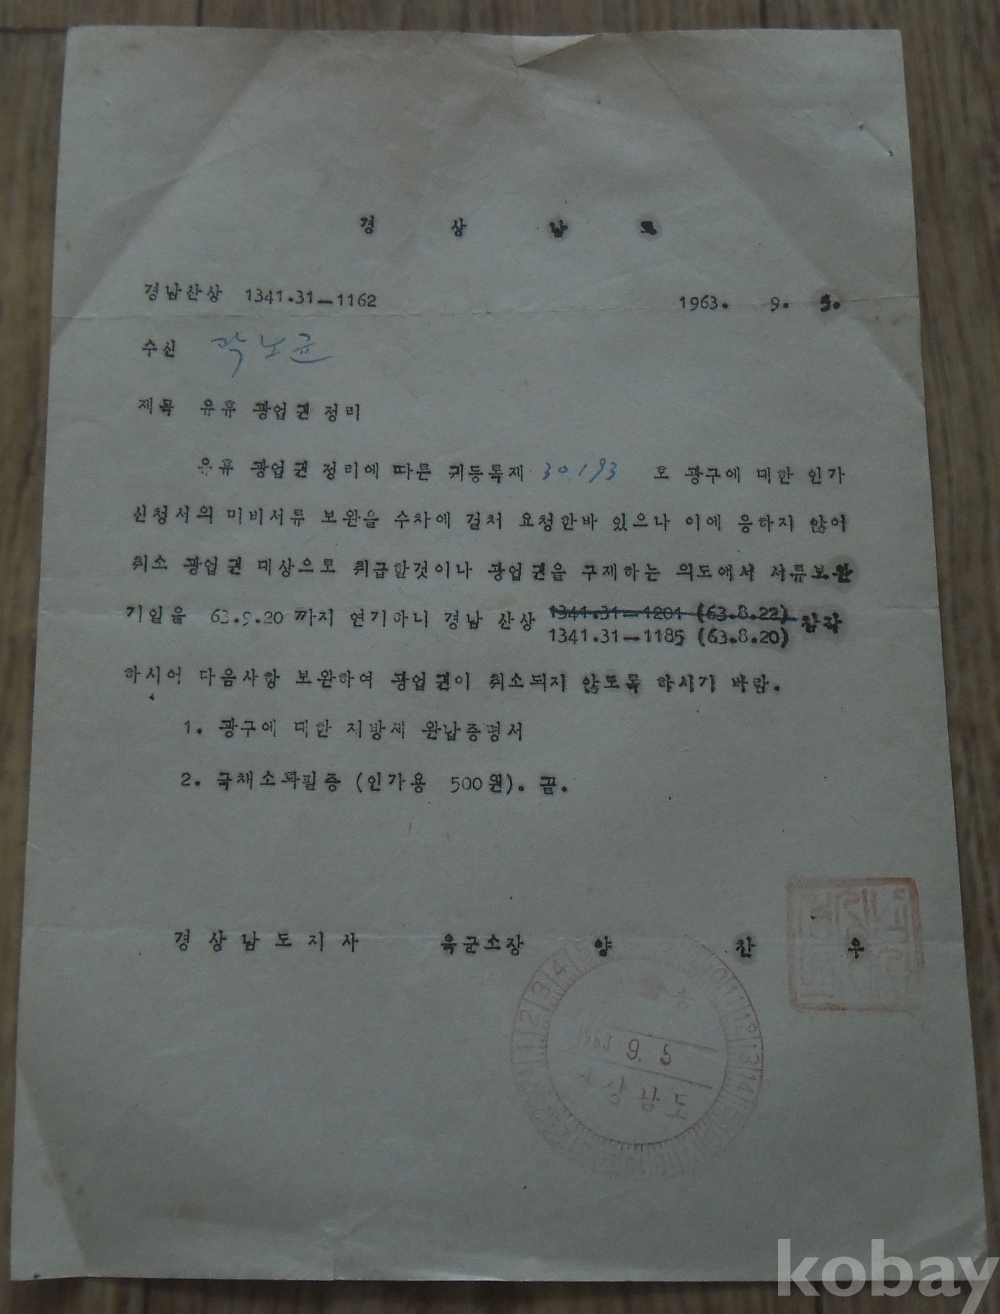 경 상 남 도
경남산상 1341.31-1162 1963. 9. 5.
수신 곽노균
제목 유휴 광업권 정리
유휴 광업권 정리에 따른 귀등록제 30193 호 광구에 대한 인가
신청서의 미비서류 보완을 수차에 걸처 요청한바 있으나 이에 응하지 않어
취소 광업권 대상으로 취급할것이나 광업권을 구제하는 의도에서 서류보완
기일을 63.9.20 까지 연기하니 경남 산상 1341.31-1201 (63.8.22) 참작
1341.31-1185 (63.8.20)
하시어 다음사항 보완하여 광업권이 취소되지 않도록 하시기 바람.
1. 광구에 대한 지방세 완납증명서
2. 국채소화필증 (인가용 500원). 끝.
경 상 남 도 지 사 육군소장 양 찬 우
1963 9. 5
상남도
kobay